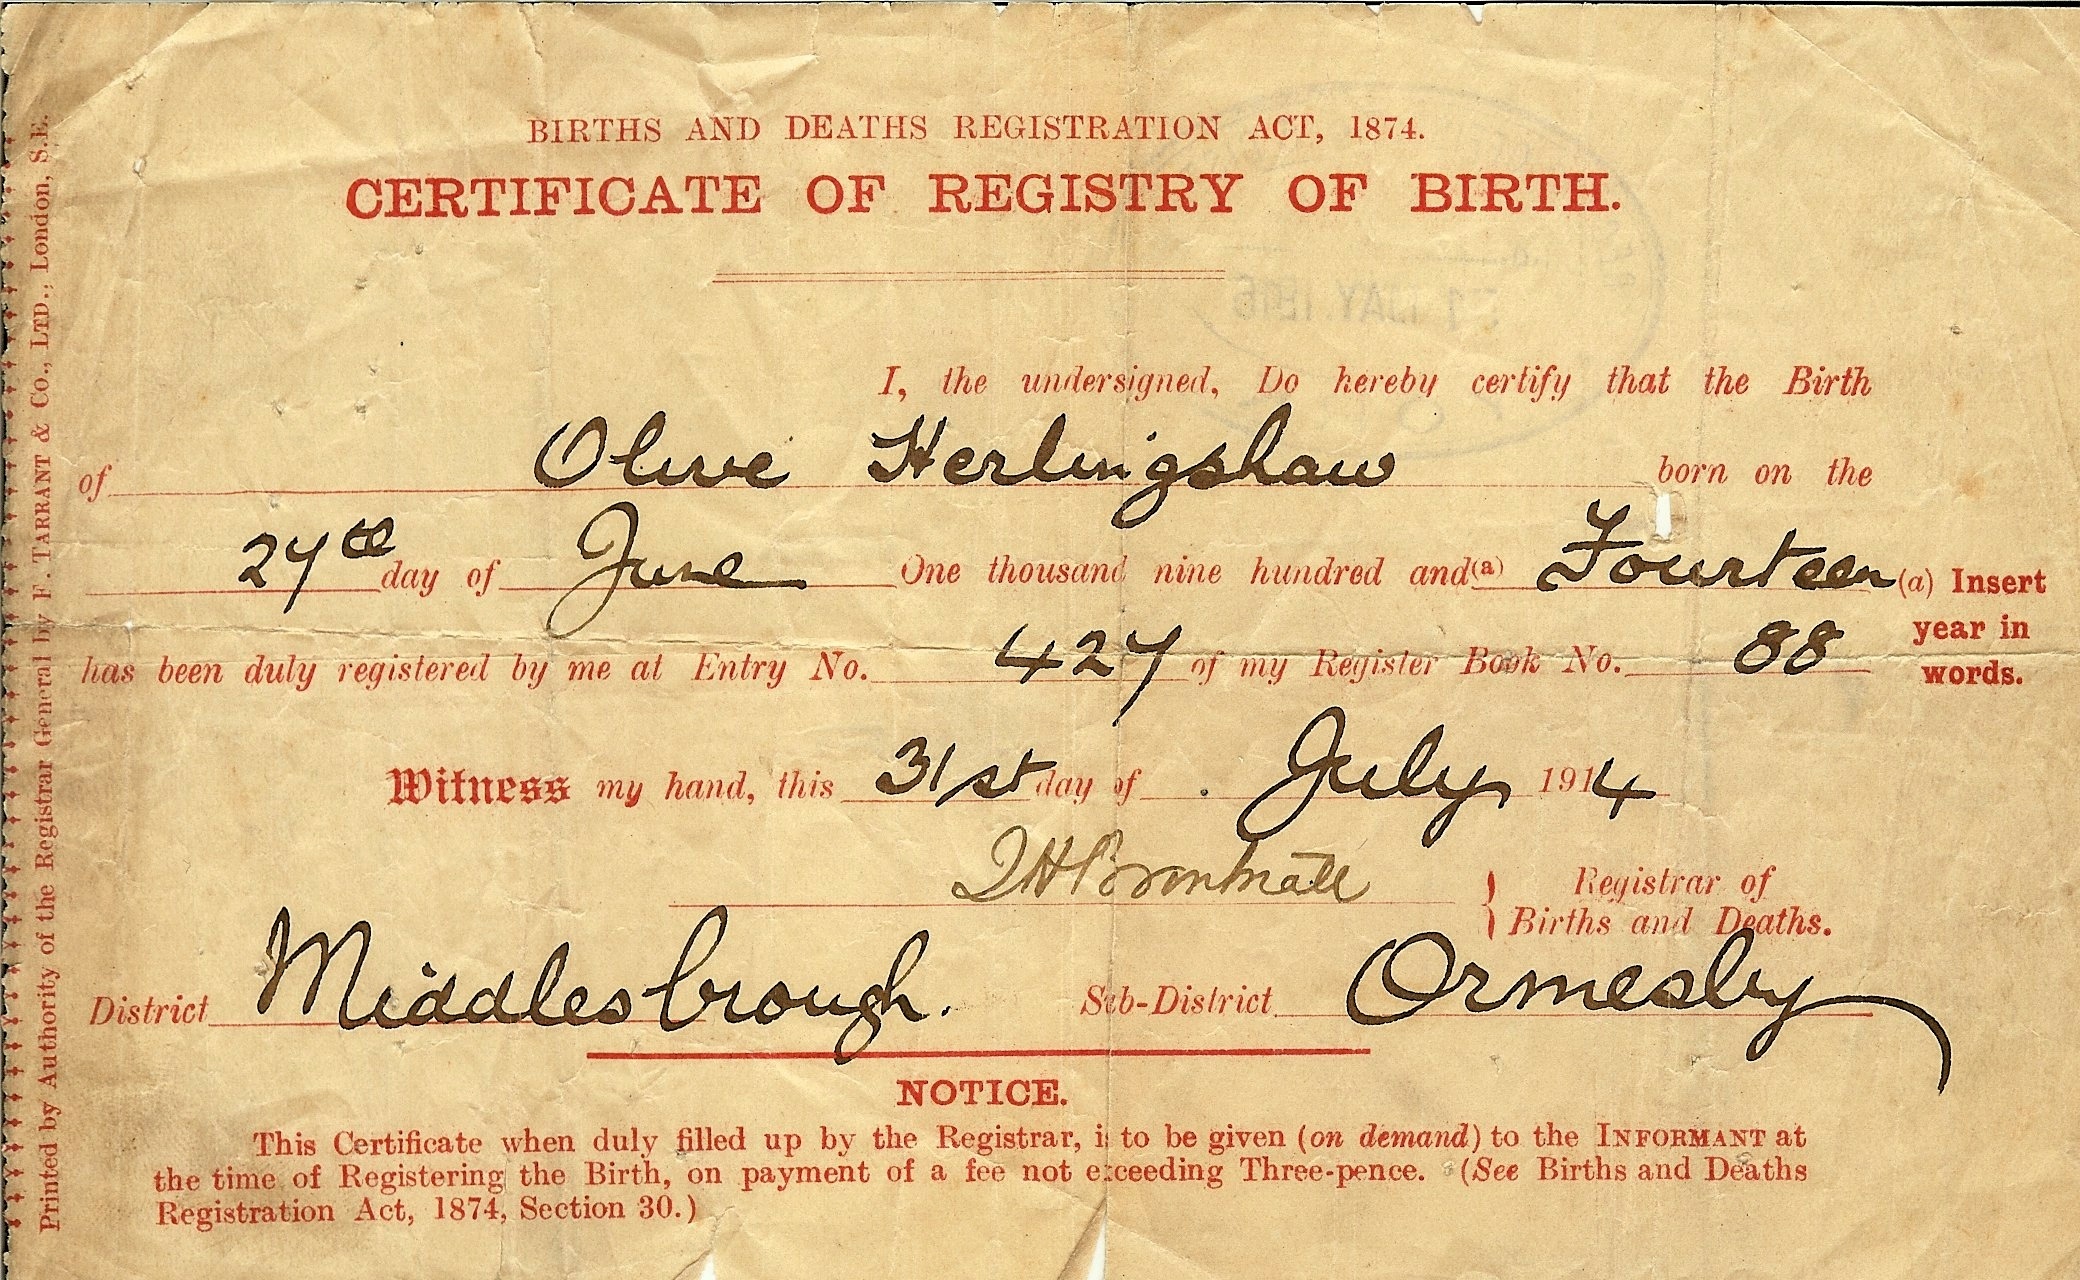 BIRTHS AND DEATHS REGISTRATION ACT, 1874.
CERTIFICATE OF REGISTRY OF BIRTH.
I, the undersigned, Do hereby certify that the Birth
of Olive Herlingshaw born on the
27th day of June One thousand nine hundred and (a) Fourteen
(a) Insert
year in
words.
has been duly registered by me at Entry No. 427 of my Register Book No. 88
Witness my hand, this 31st day of July 1914
Registrar of
Births and Deaths.
District Middlesbrough. Sub-District Ormesby
NOTICE.
This Certificate when duly filled up by the Registrar, is to be given (on demand) to the INFORMANT at
the time of Registering the Birth, on payment of a fee not exceeding Three-pence. (See Births and Deaths
Registration Act, 1874, Section 30.)
Printed by Authority of the Registrar General by F. TARRANT & Co., LTD., London, S.E.